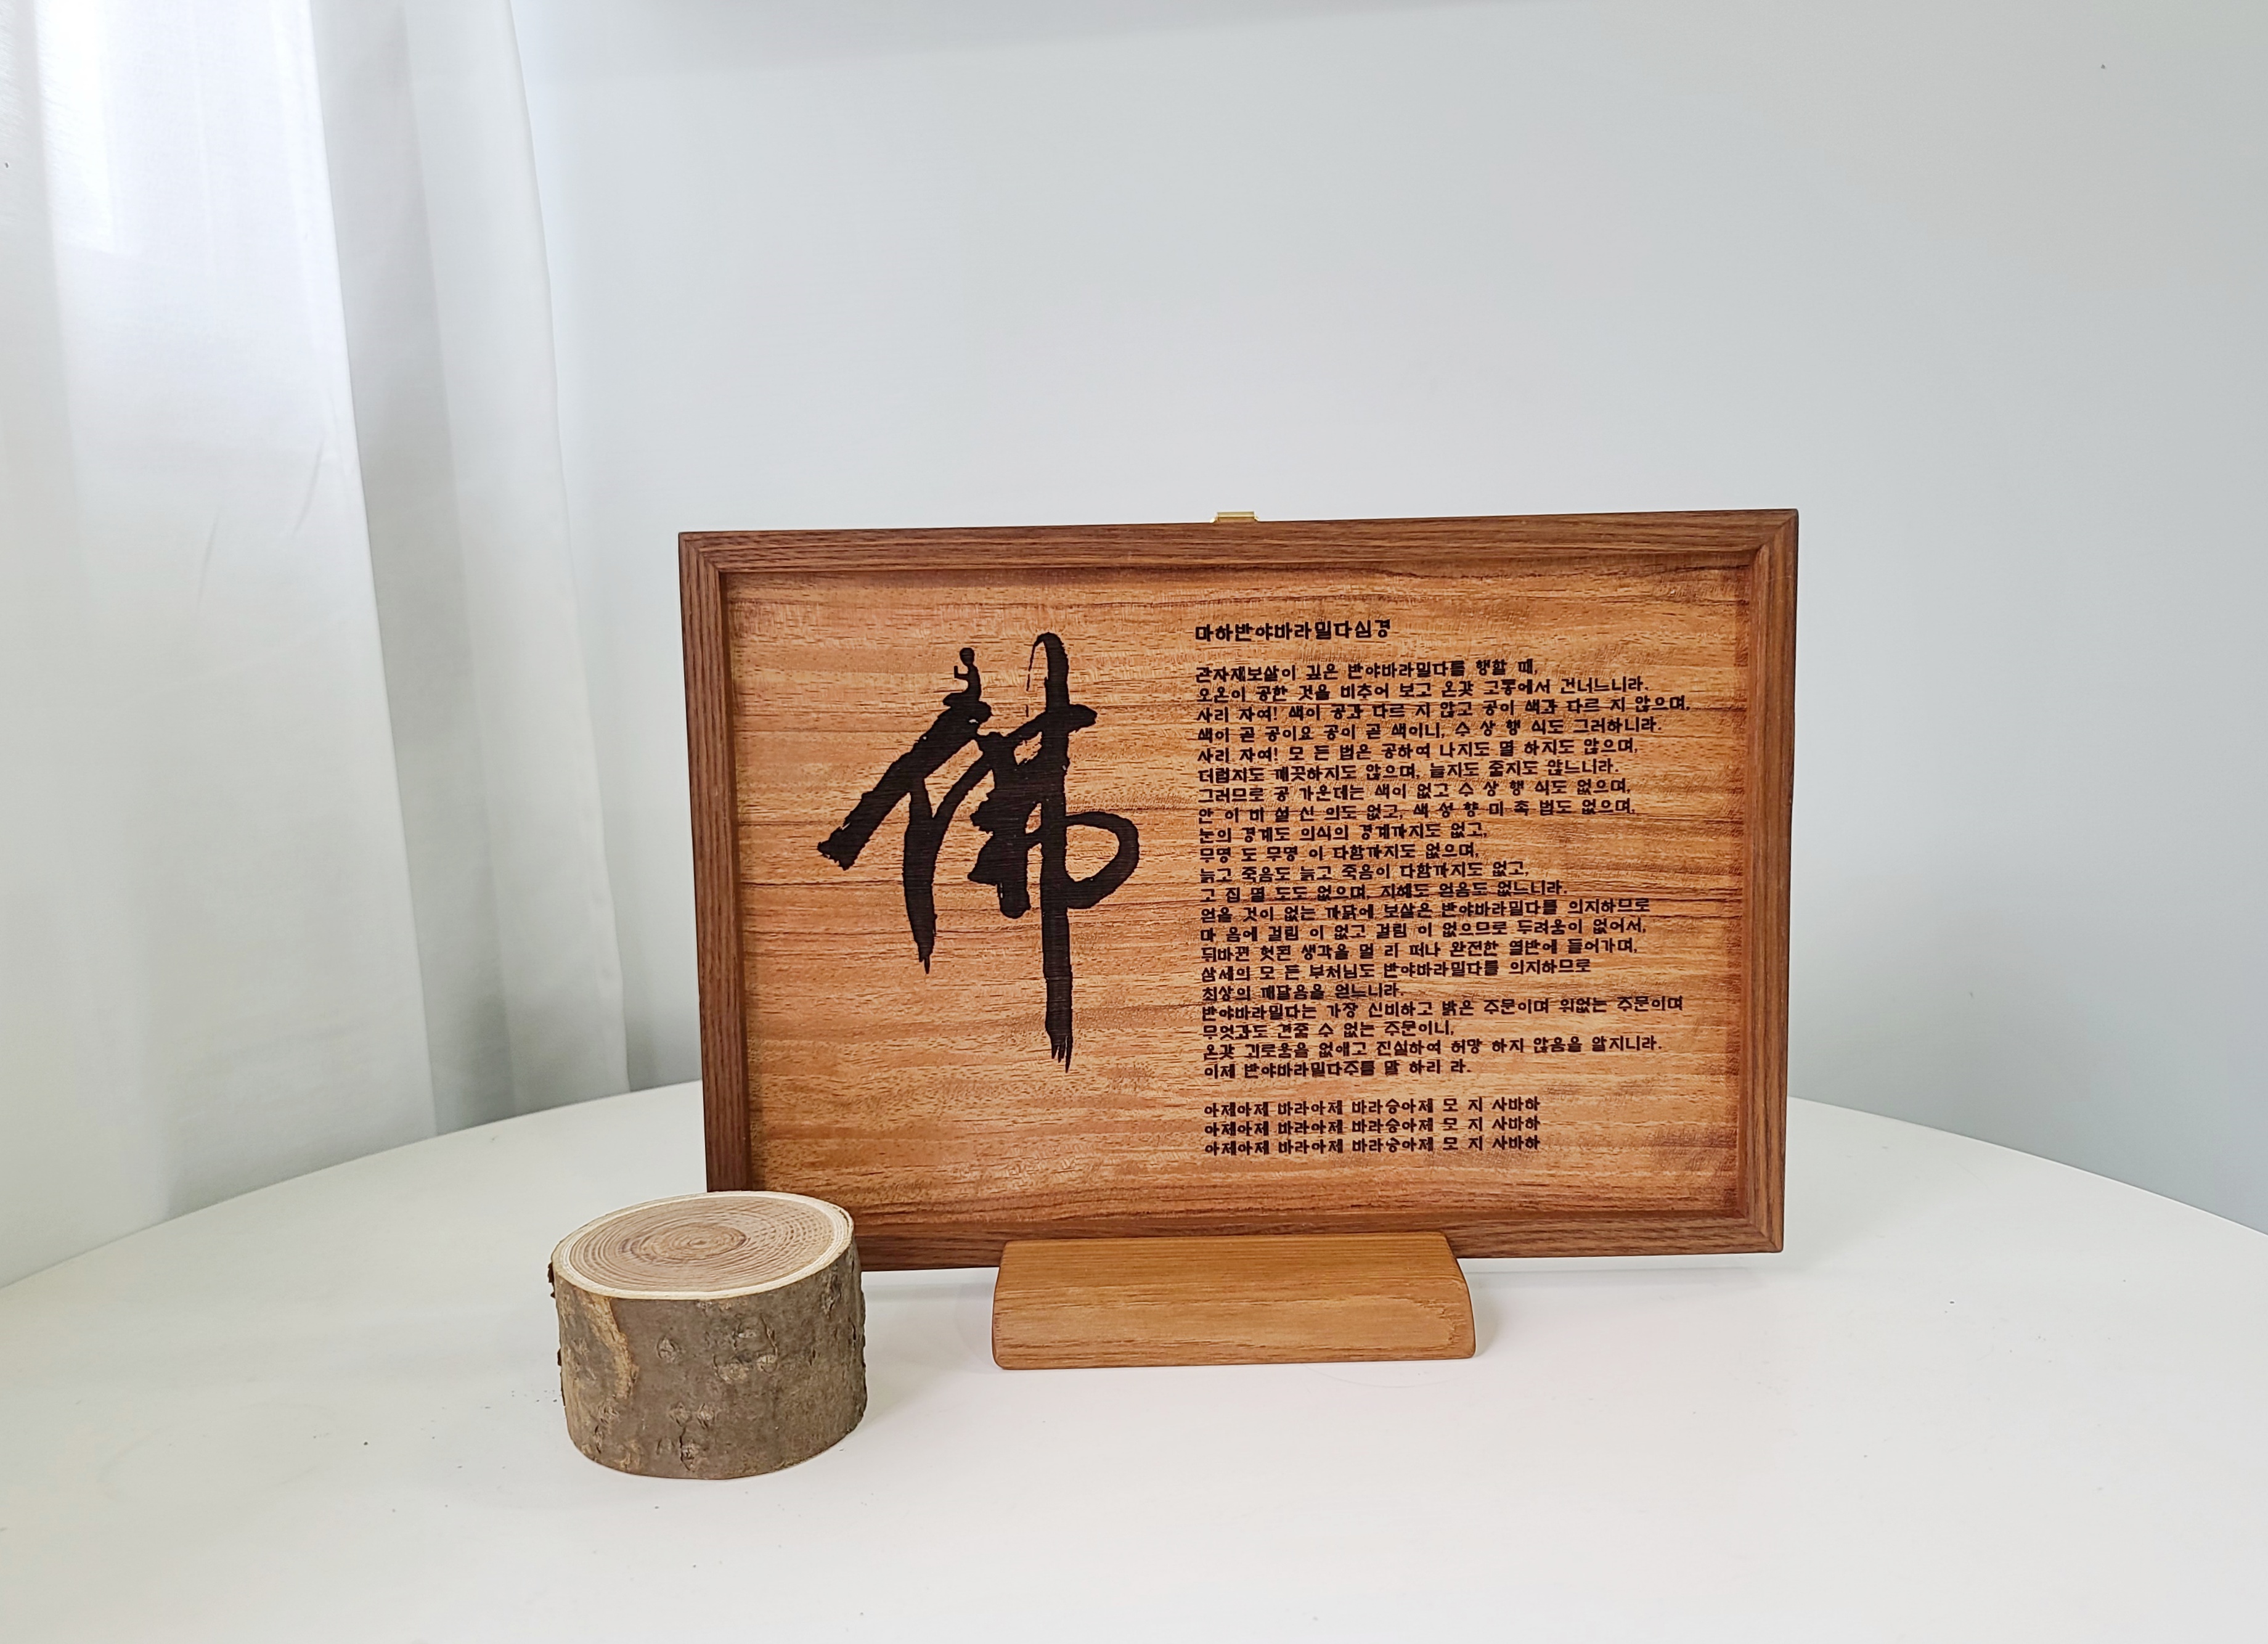 佛
마하반야바라밀다심경
관자재보살이 깊은 반야바라밀다를 행할 때,
오온이 공한 것을 비추어 보고 온갖 고통에서 건너느니라.
사리 자여! 색이 공과 다르 지 않고 공이 색과 다르 지 않으며,
색이 곧 공이요 공이 곧 색이니, 수 상 행 식도 그러하니라.
사리 자여! 모 든 법은 공하여 나지도 멸 하지도 않으며,
더럽지도 깨끗하지도 않으며, 늘지도 줄지도 않느니라.
그러므로 공 가운데는 색이 없고 수 상 행 식도 없으며,
안 이 비 설 신 의도 없고, 색 성 향 미 촉 법도 없으며,
눈의 경계도 의식의 경계까지도 없고,
무명 도 무명 이 다함까지도 없으며,
늙고 죽음도 늙고 죽음이 다함까지도 없고,
고 집 멸 도도 없으며, 지혜도 얻음도 없느니라.
얻을 것이 없는 까닭에 보살은 반야바라밀다를 의지하므로
마 음에 걸림 이 없고 걸림 이 없으므로 두려움이 없어서,
뒤바뀐 헛된 생각을 멀 리 떠나 완전한 열반에 들어가며,
삼세의 모 든 부처님도 반야바라밀다를 의지하므로
최상의 깨달음을 얻느니라.
반야바라밀다는 가장 신비하고 밝은 주문이며 위없는 주문이며
무엇과도 견줄 수 없는 주문이니,
온갖 괴로움을 없애고 진실하여 허망 하지 않음을 알지니라.
이제 반야바라밀다주를 말 하리 라.
아제아제 바라아제 바라승아제 모 지 사바하
아제아제 바라아제 바라승아제 모 지 사바하
아제아제 바라아제 바라승아제 모 지 사바하